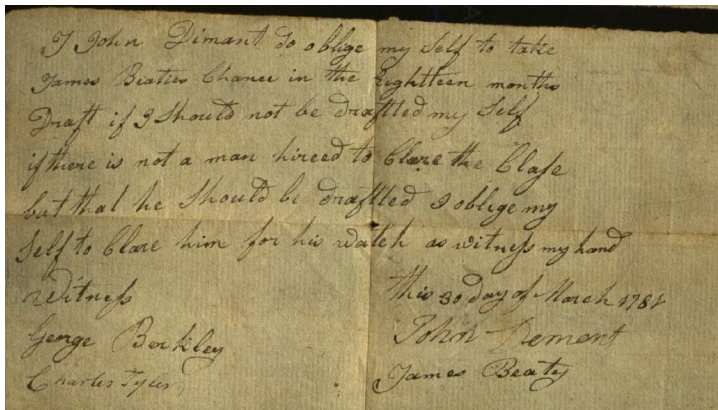 I John Dimant do oblige my Self to take
James Beaties Chance in the Eighteen months
Draft if I Should not be draftted my Self
if there is not a man hireed to Clare the Class
but that he Should be draftted I oblige my
Self to Clare him for his watch as witness my hand
Witness this 30 day of March 1781
George Berkley John Dement
Charles Tyler James Beaty